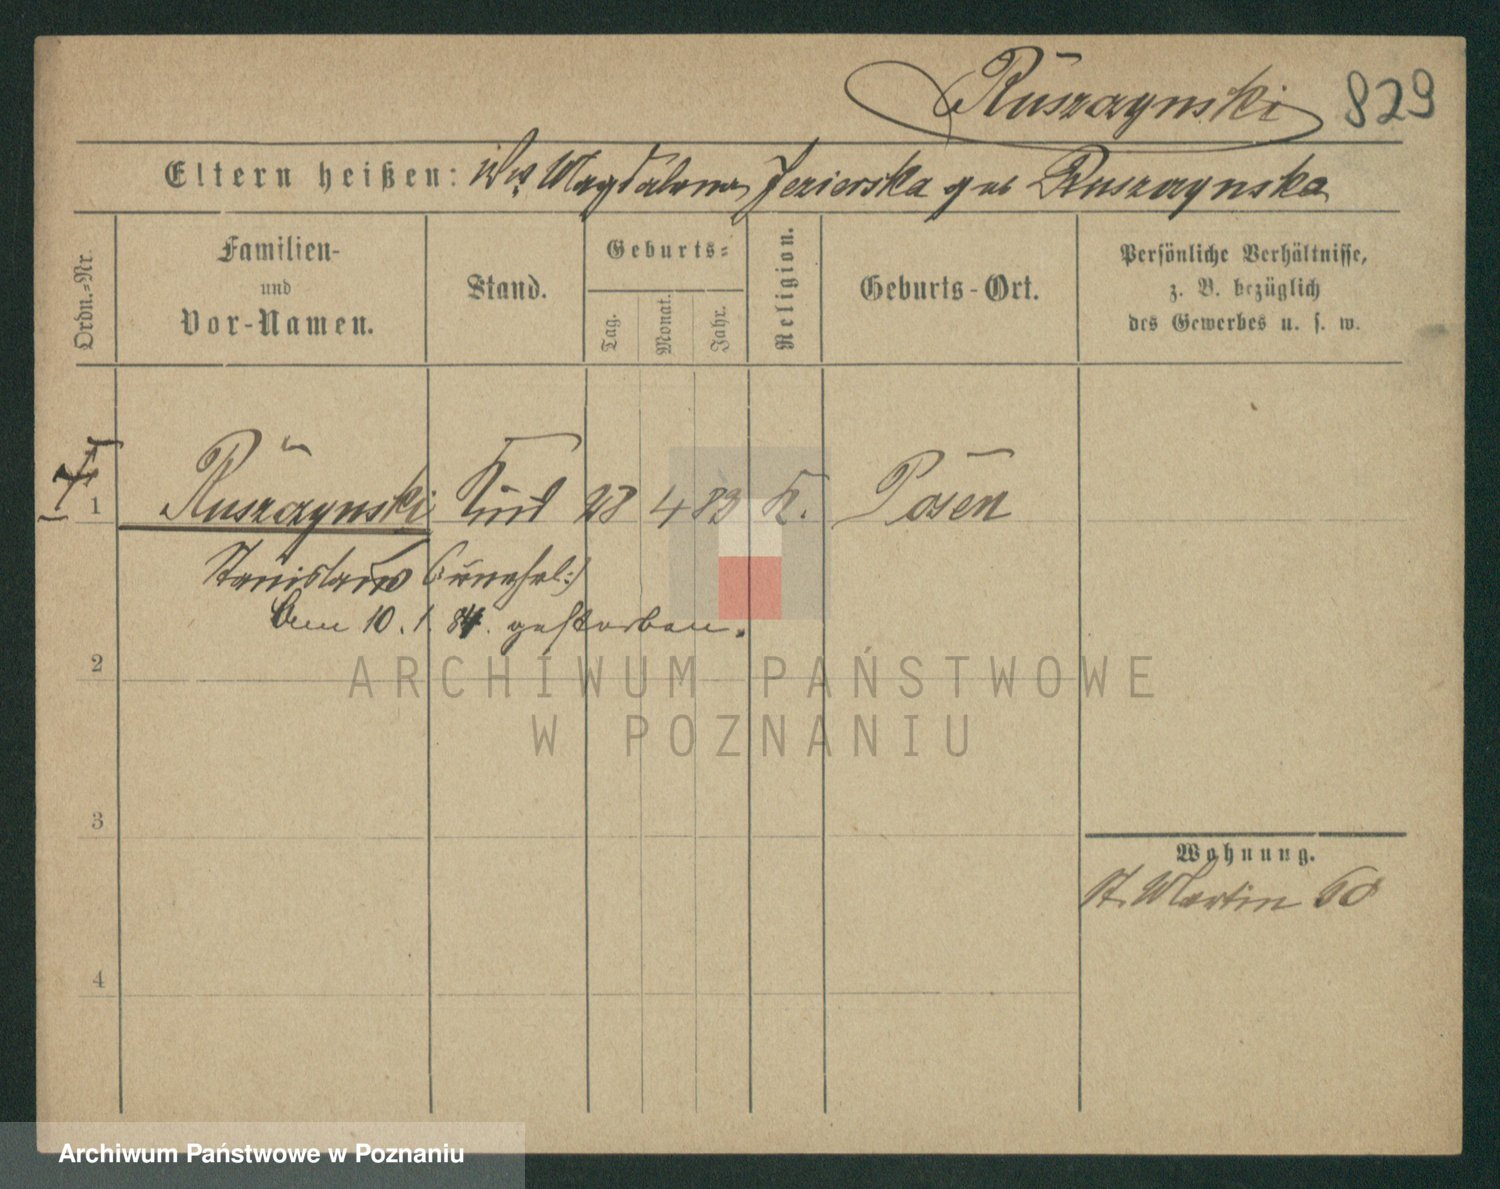 Ruszczynski 829
Eltern heißen: Ww. Magdalena Jezierska geb Ruszczynska
Ordn.=Nr.
Familien-
und
Vor-Namen.
Stand.
Geburts=
Tag.
Monat.
Jahr.
Religion.
Geburts-Ort.
Persönliche Verhältnisse,
z. B. bezüglich
des Gewerbes u. s. w.
1 Ruszczynski Kind 28 4 83 K. Posen
Stanislaus (: unehel :)
am 10. 1. 84. gestorben.
2
3
4
Wohnung.
St. Martin 60
ARCHIWUM PAŃSTWOWE
W POZNANIU
Archiwum Państwowe w Poznaniu